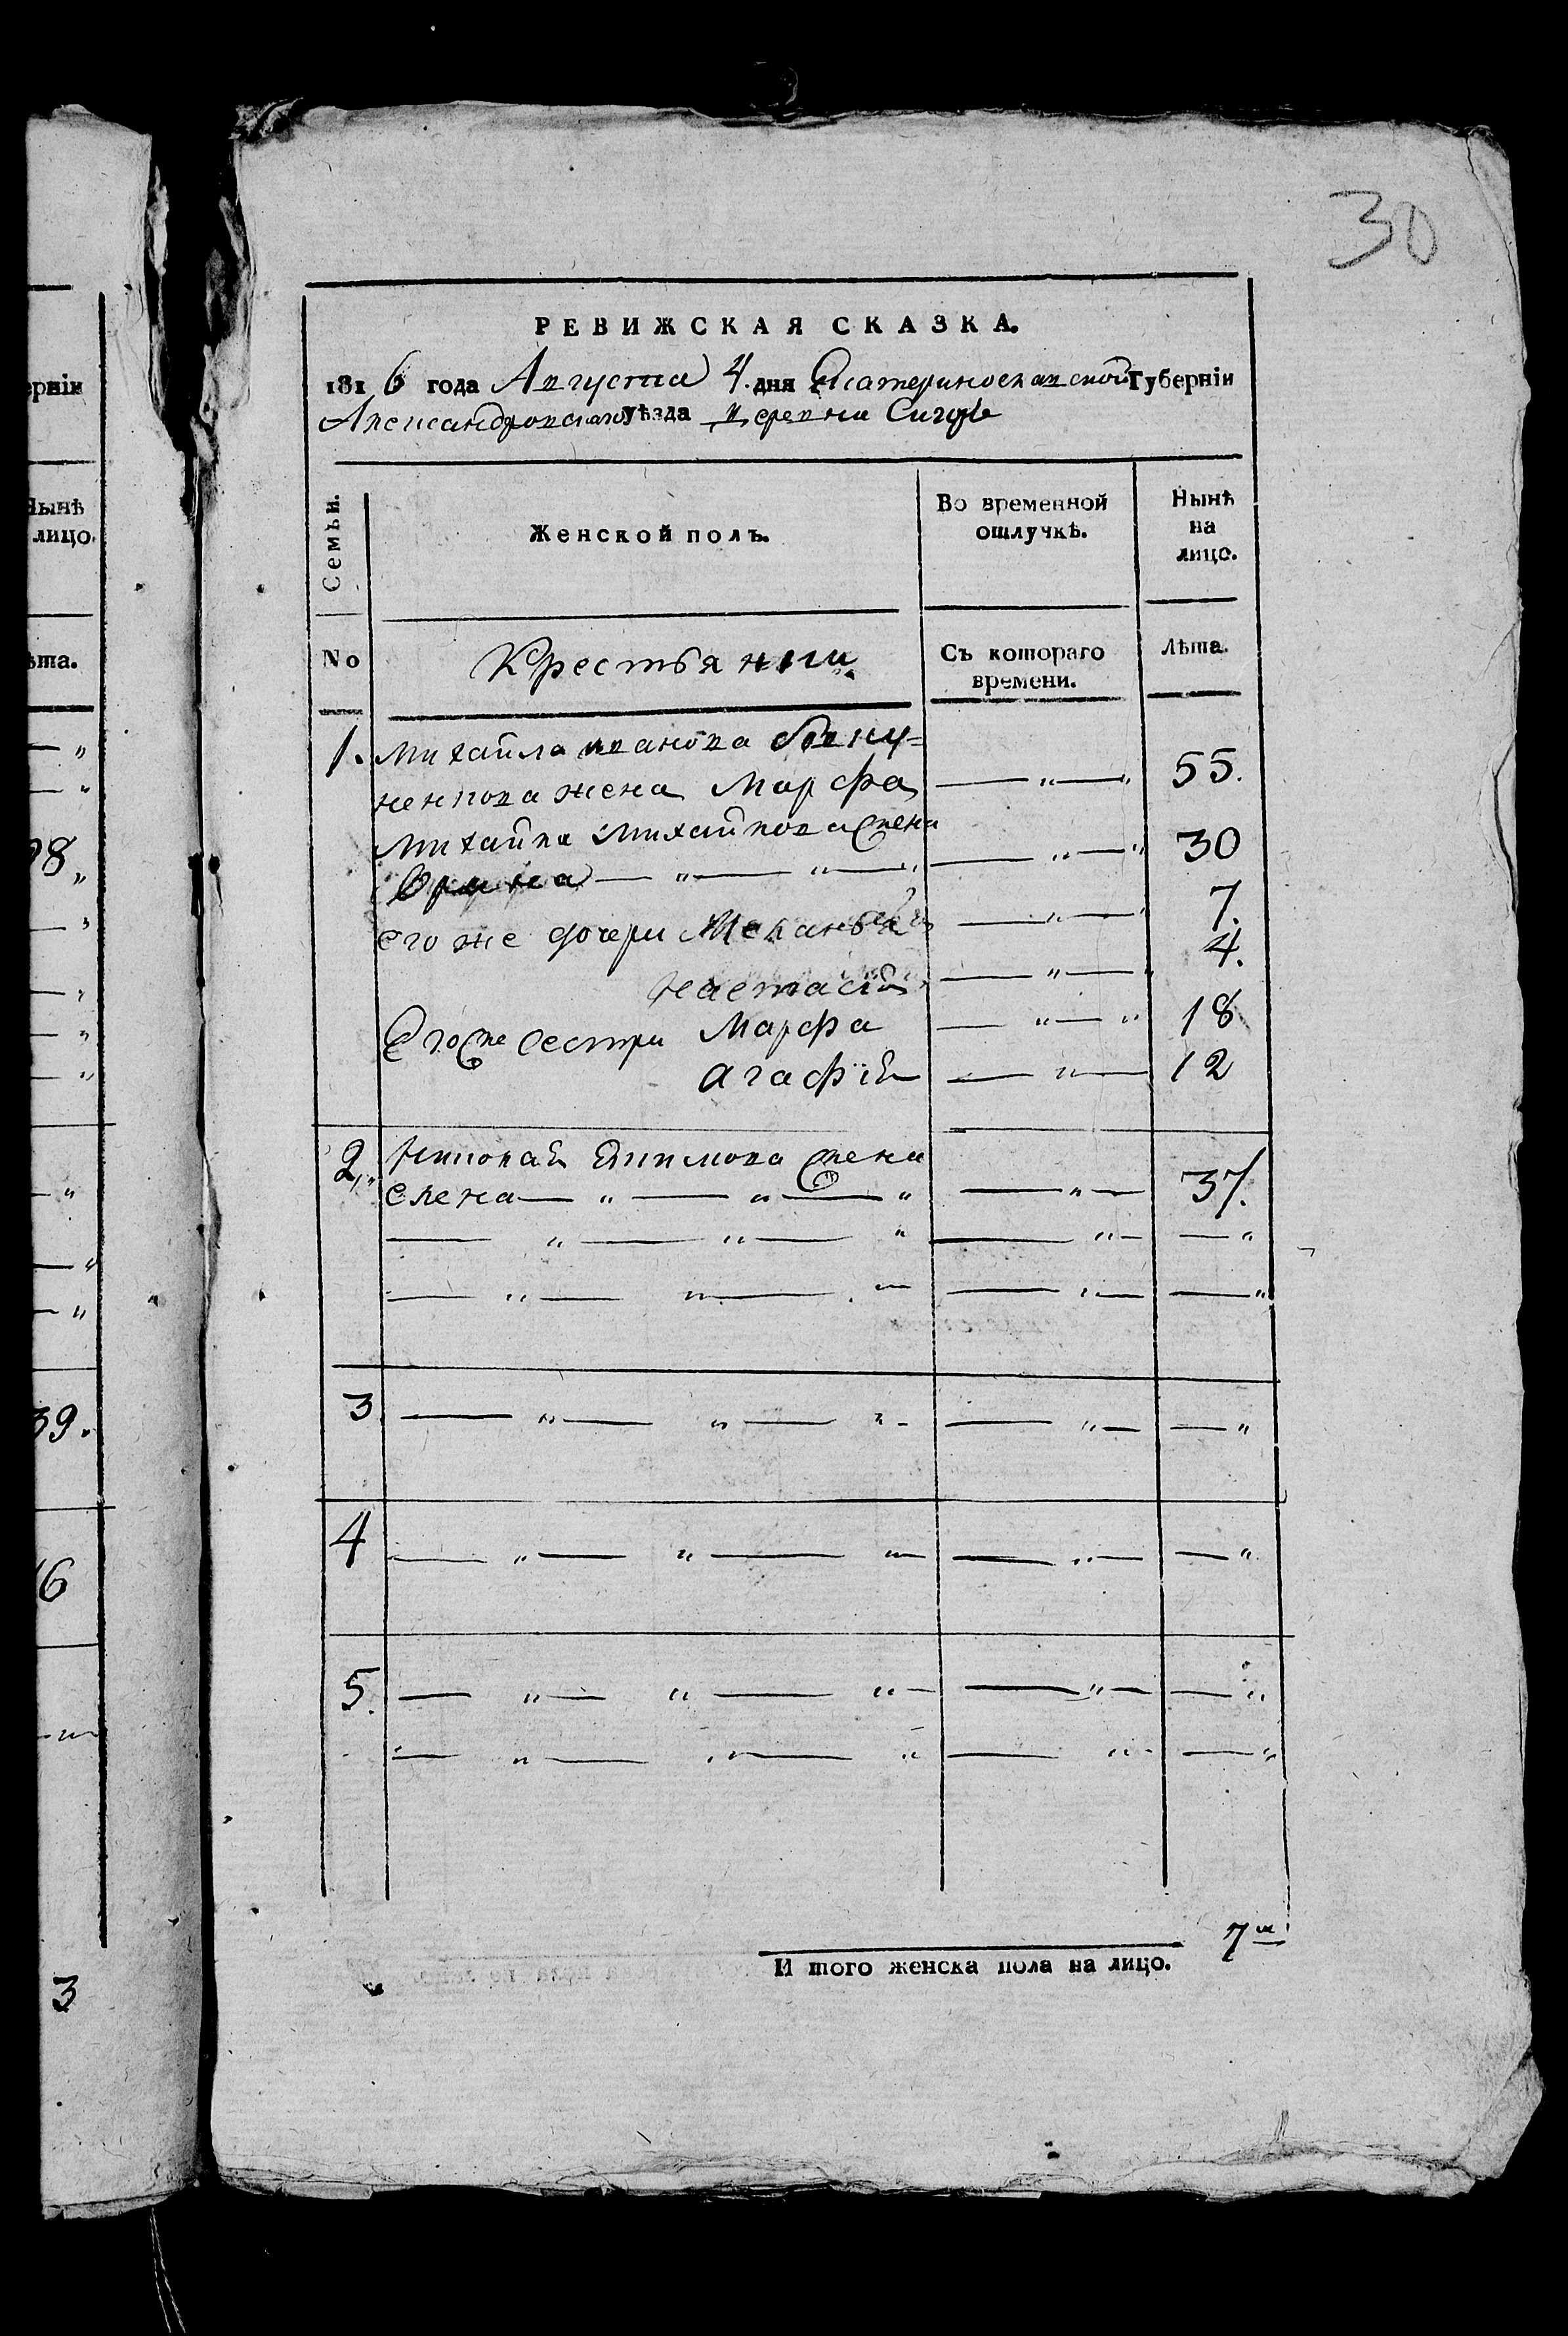 30
РЕВИЖСКАЯ СКАЗКА.
1816 года Августа 4. дня Екатеринославской Губерніи
Александровскаго уѣзда деревни
Семьи.
Женской полъ.
Во временной
отлучкѣ.
Нынѣ
на
лицо.
No
Крестьянки
Съ котораго
времени.
Лѣта.
1. Михайла Иванова
жена Марфа — „ — „ 55.
Михайла Михайлова жена
— „ — „ — „ — „ 30
его же дочери Меланья — „ — „ 7.
Настасія — „ — „ 4.
Его же сестри Марфа — „ — „ 18
Агафія — „ — 12
2„ Николая Якимова жена
Елена — „ — „ — „ — „ — 37.
— „ — „ — „ — „ — — „
— „ — „ — „ — — „ — — „
3. — „ — „ — „ - — „ — — „
4 — „ — „ — „ — — „ — — „
5. — „ — „ — „ — — „ — — „
— „ — „ — „ — „ - — „
7
И того женска пола на лицо.
ерніи
Нынѣ
лицо.
ѣта.
— „
— „
98„
— „
— „
— „
— „
— „
— „
— „
39.
16
— „ —
3